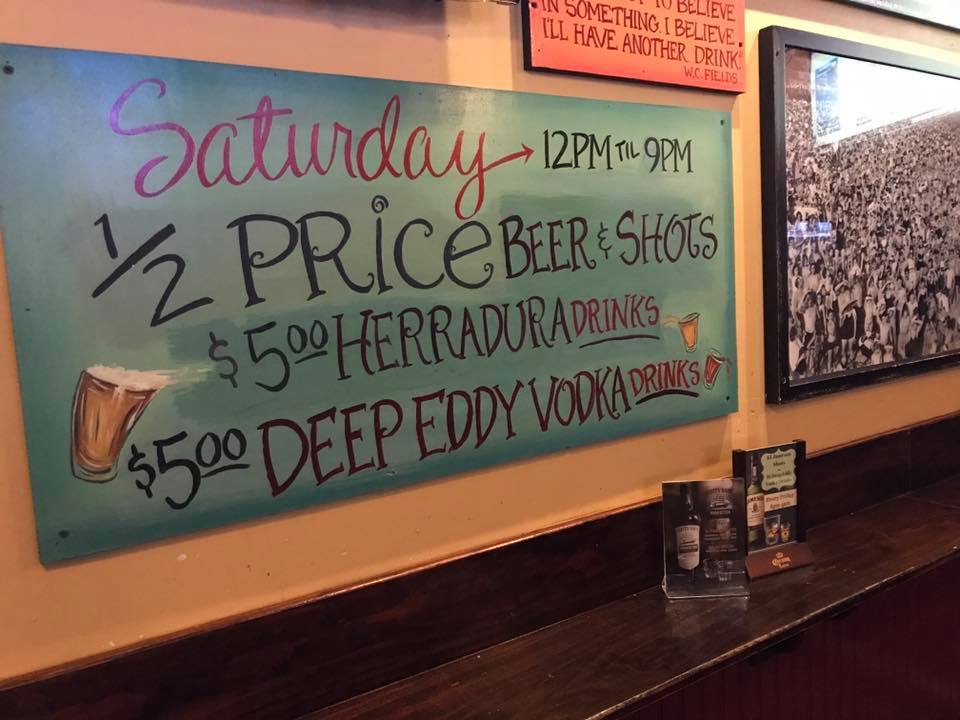 TO BELIEVE
IN SOMETHING. I BELIEVE
I'LL HAVE ANOTHER DRINK.
W.C. FIELDS
Saturday → 12PM TIL 9PM
1/2 PRICE BEER & SHOTS
$5.00 HERRADURA DRINKS
$5.00 DEEP EDDY VODKA DRINKS
Every Friday